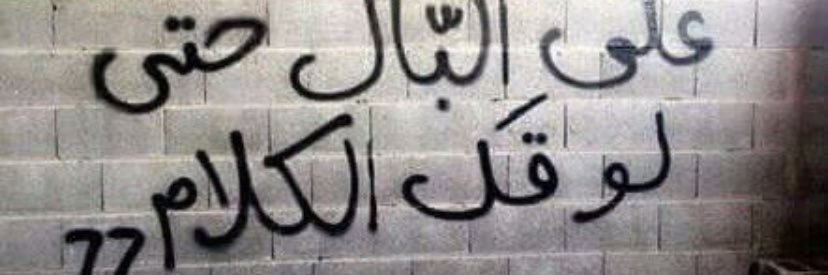 على البّال حتى
لو قَل الكلام
77